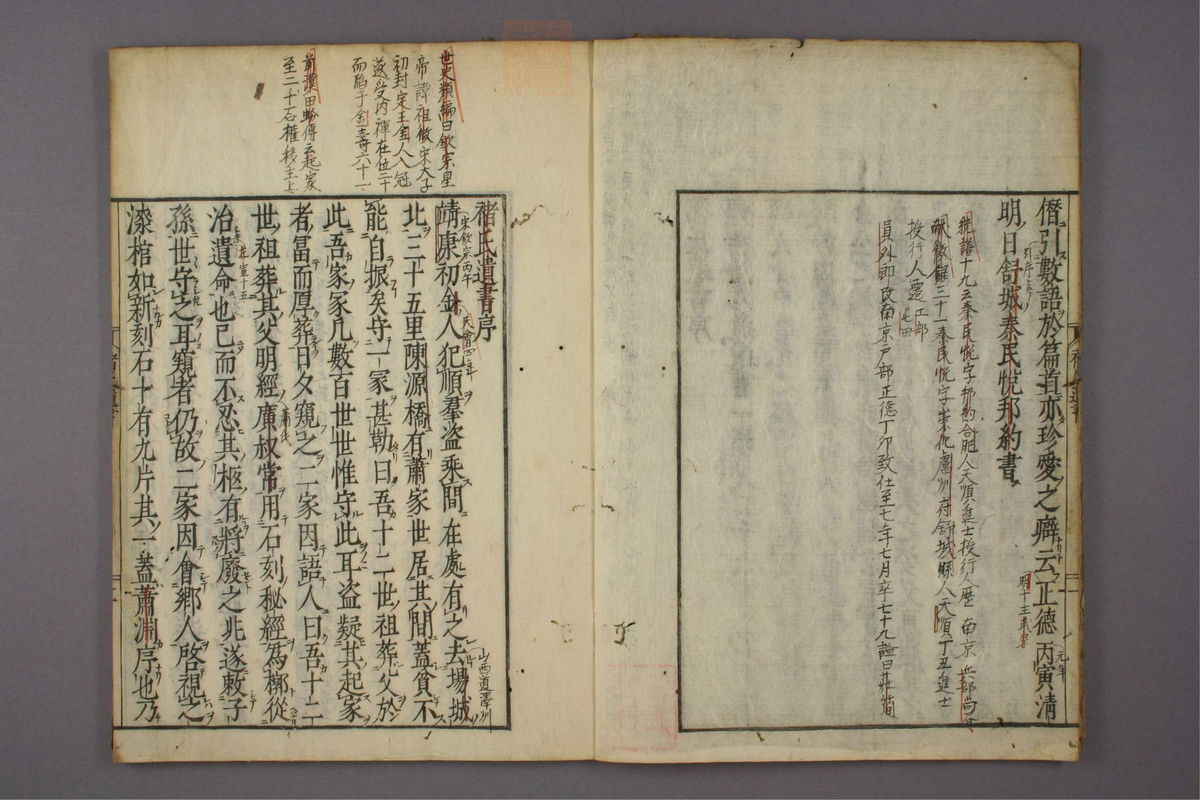 僭引數語於篇首亦珍愛之癖云正德丙寅清
明日舒城秦民悅邦約書
元年
明十三武宗
十九云秦民悅字邦約合肥人天順進士授行人歷南京兵部尚書
三十一秦民悅字崇化廬州府舒城縣人天順丁丑進士
授行人遷工部屯田
員外郎改南京戶部正德丁卯致仕至七年七月卒七十九謚曰莊簡
世史類編曰欽宗皇
帝諱桓徽宋太子
初封定王金人入冠
遂受內禪在位二十
而陷于金壽六十一
前漢田蚡傳云起家
至二千石權移主上
褚氏遺書序
靖康初金人犯順羣盗乘間在處有之去場城
宋欽宗丙午
天會四年
山西道澤州
北三十五里陳源橋有蕭家世居其間蓋貧不
能自振矣守一冢甚勤曰吾十二世祖葬父於
此吾家冢凡數百世世惟守此耳盗疑其起家
者冨而厚葬日夕窺之二家因語人曰吾十二
世祖葬其父明經廣叔常用石刻秘經爲槨從
蕭氏
治遺命也已而不忍其柩有將廢之兆遂敕子
孫世守之耳窺者仍故二家因會鄉人啓視之
漆棺如新刻石十有九片其一蓋蕭淵序也乃